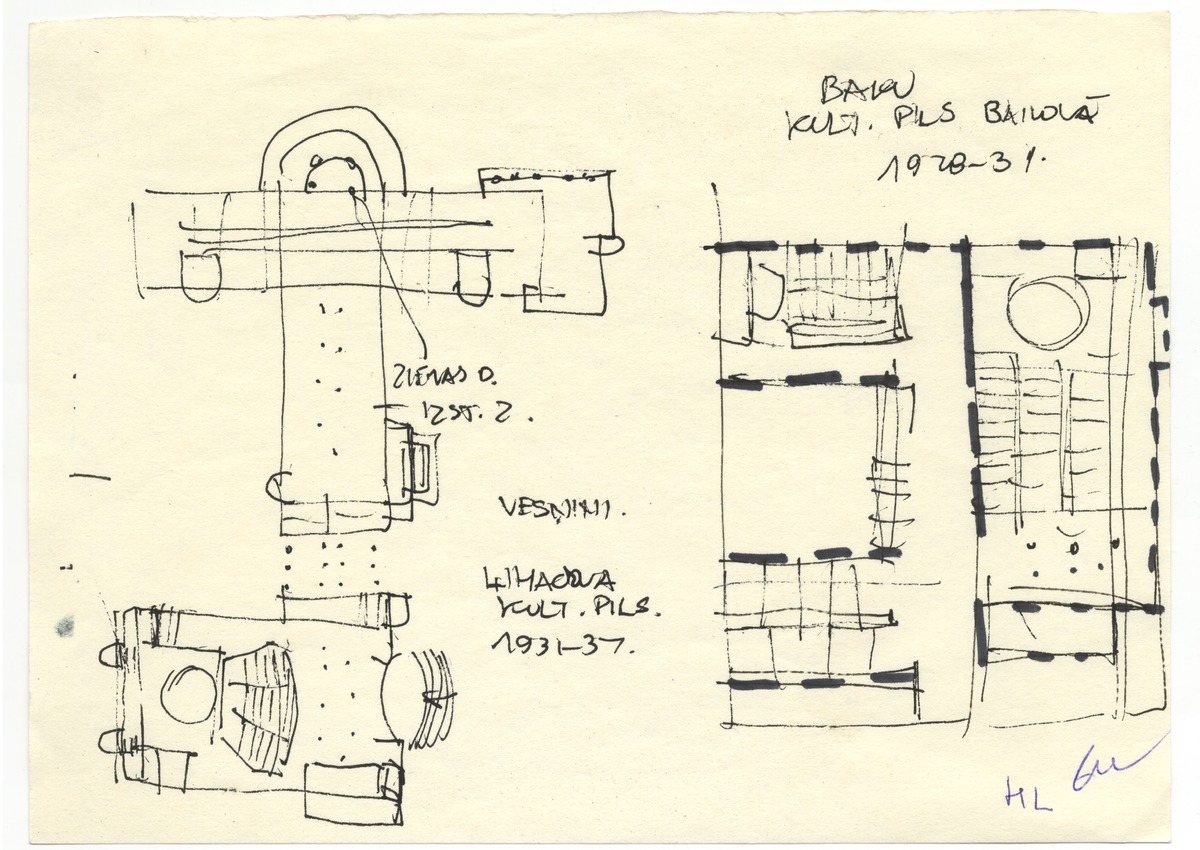 BAKU
KULT. PILS BAILOVĀ
1928-31.
ZIEMAS D.
IZST. Z.
VESNINI.
LIHAČOVA
KULT. PILS.
1931-37.
HL